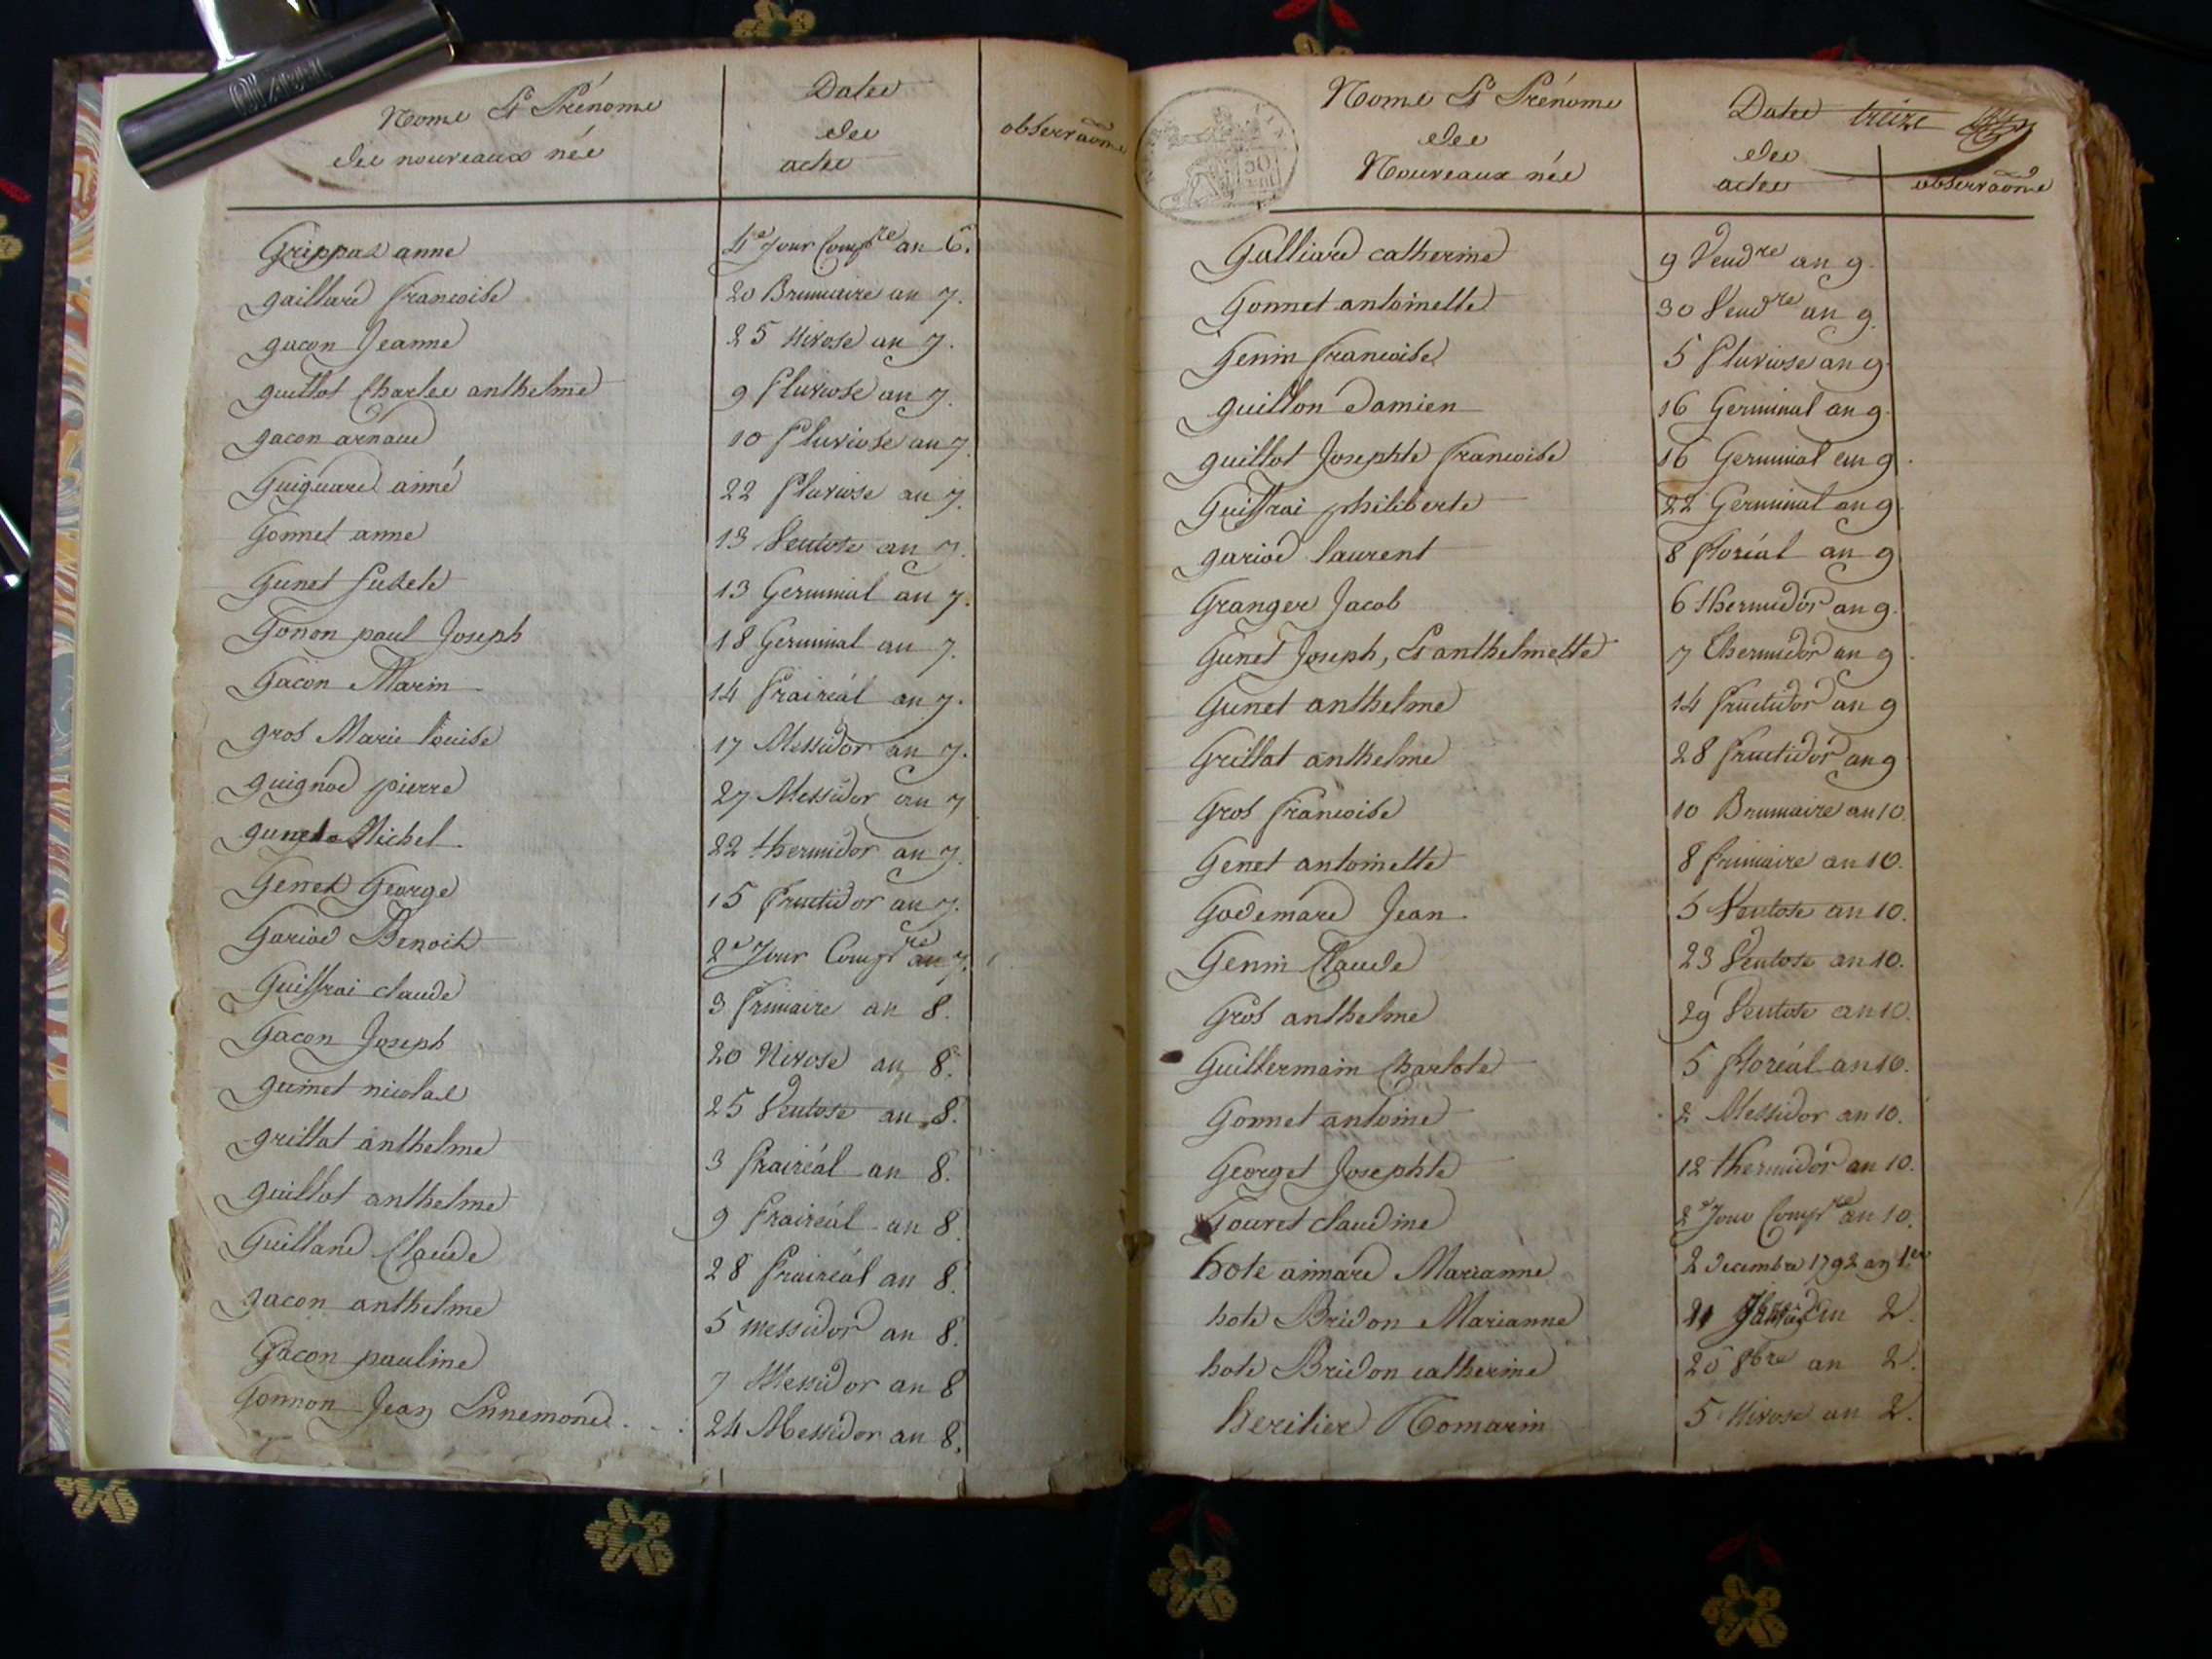 Noms Et Prénoms
des nouveaux nés
Dates
des
actes
observaons
Grippas anne 4e Jour Compre an 6.
gaillard francoise 20 Brumaire an 7.
gacon Jeanne 25 Nivose an 7.
guillot Charles anthelme 9 Pluviose an 7.
gacon arnaud 10 Pluviose an 7.
Guiguard aimé 22 Pluviose an 7.
Gonnet anne 13 Ventose an 7.
Gunet 13 Germinal an 7.
Gonon paul Joseph 18 Germinal an 7.
Gacon Marin 14 Prairéal an 7.
gros Marie louise 17 Messidor an 7.
guignod pierre 27 Messidor an 7
gunet Michel. 22 thermidor an 7.
Genet George 15 fructidor an 7.
Gariod Benoit 2e Jour Compre an 7.
Guiffrai claude 3 frimaire an 8.
Gacon Joseph 20 Nivose an 8.
guinet nicolas 25 Ventose an 8.
grillat anthelme 3 Prairéal an 8.
guillot anthelme 9 Prairéal an 8.
Guilland Claude 28 Prairéal an 8.
gacon anthelme 5 messidor an 8.
Gacon pauline 7 Messidor an 8
Gonnon Jean Ennemond 24 Messidor an 8.
Noms Et Prénoms
des
Nouveaux nés
Dates treize
des
actes
observaons
50
Galliard catherine 9 Vendre an 9.
Gonnet antoinette 30 Vendre an 9.
Genin francoise 5 Pluviose an 9.
guillon Damien 16 Germinal an 9.
guillot Josephte francoise 16 Germinal an 9.
Guiffrai philiberte 22 Germinal an 9.
gariod laurent 8 floréal an 9
Granger Jacob 6 thermidor an 9.
Gunet Joseph, Et anthelmette 7 thermidor an 9.
Gunet anthelme 14 fructidor an 9
Grillat anthelme 28 fructidor an 9
Gros francoise 10 Brumaire an 10.
Genet antoinette 8 frimaire an 10.
Godemard Jean. 5 Ventose an 10.
Genin Claude 23 Ventose an 10.
Gros anthelme 29 Ventose an 10.
Guillermain Charlote 5 floréal an 10.
Gonnet antoine 2 Messidor an 10.
Georget Josephte 12 thermidor an 10.
Gouret claudine 2e Jour Compre an 10.
hote aimard Marianne 2 decembre 1792 an 1er
hote Bridon Marianne 21 2.
hote Bridon catherine 20 8bre an 2.
heritier Romarin 5 Nivose an 2.